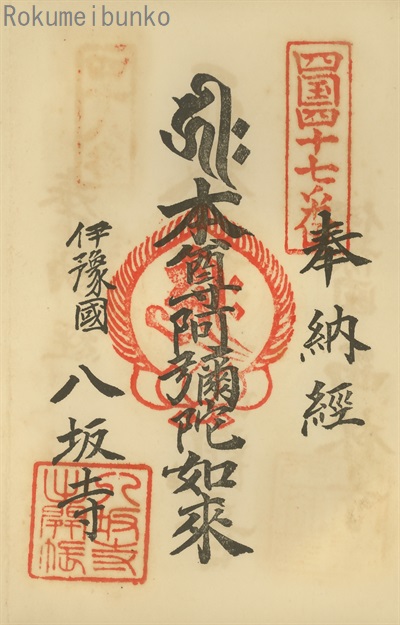 Rokumeibunko
四国四十七番
奉納經
𑖮𑖿𑖨𑖱𑖾
本尊阿彌陀如來
伊豫國
八坂寺
八坂寺